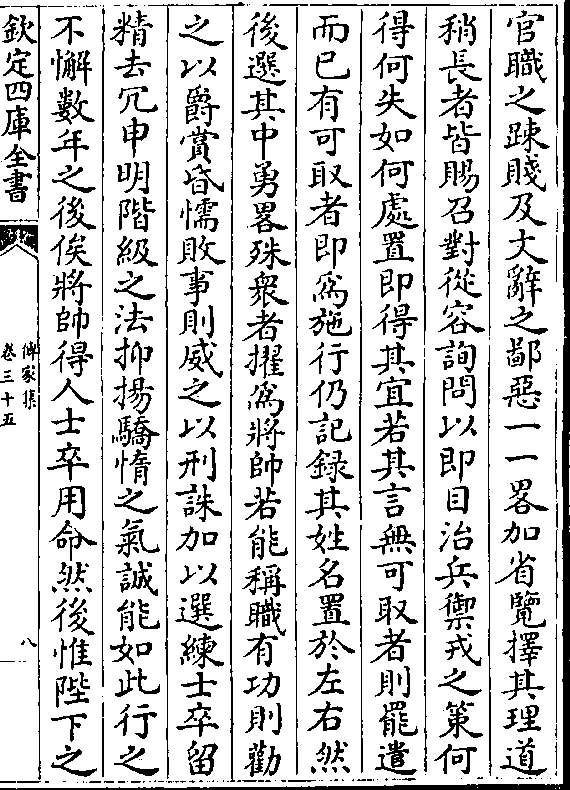 官職之踈賤及文辭之鄙惡一一畧加省覽擇其理道
稍長者皆賜召對從容詢問以即目治兵禦戎之策何
得何失如何處置即得其宜若其言無可取者則罷遣
而已有可取者即爲施行仍記録其姓名置於左右然
後選其中勇畧殊衆者擢爲將帥若能稱職有功則勸
之以爵賞昏懦敗事則威之以刑誅加以選練士卒留
精去冗申明階級之法抑揚驕惰之氣誠能如此行之
不懈數年之後俟將帥得人士卒用命然後惟陛下之
欽定四庫全書
傳家集
卷三十五
八